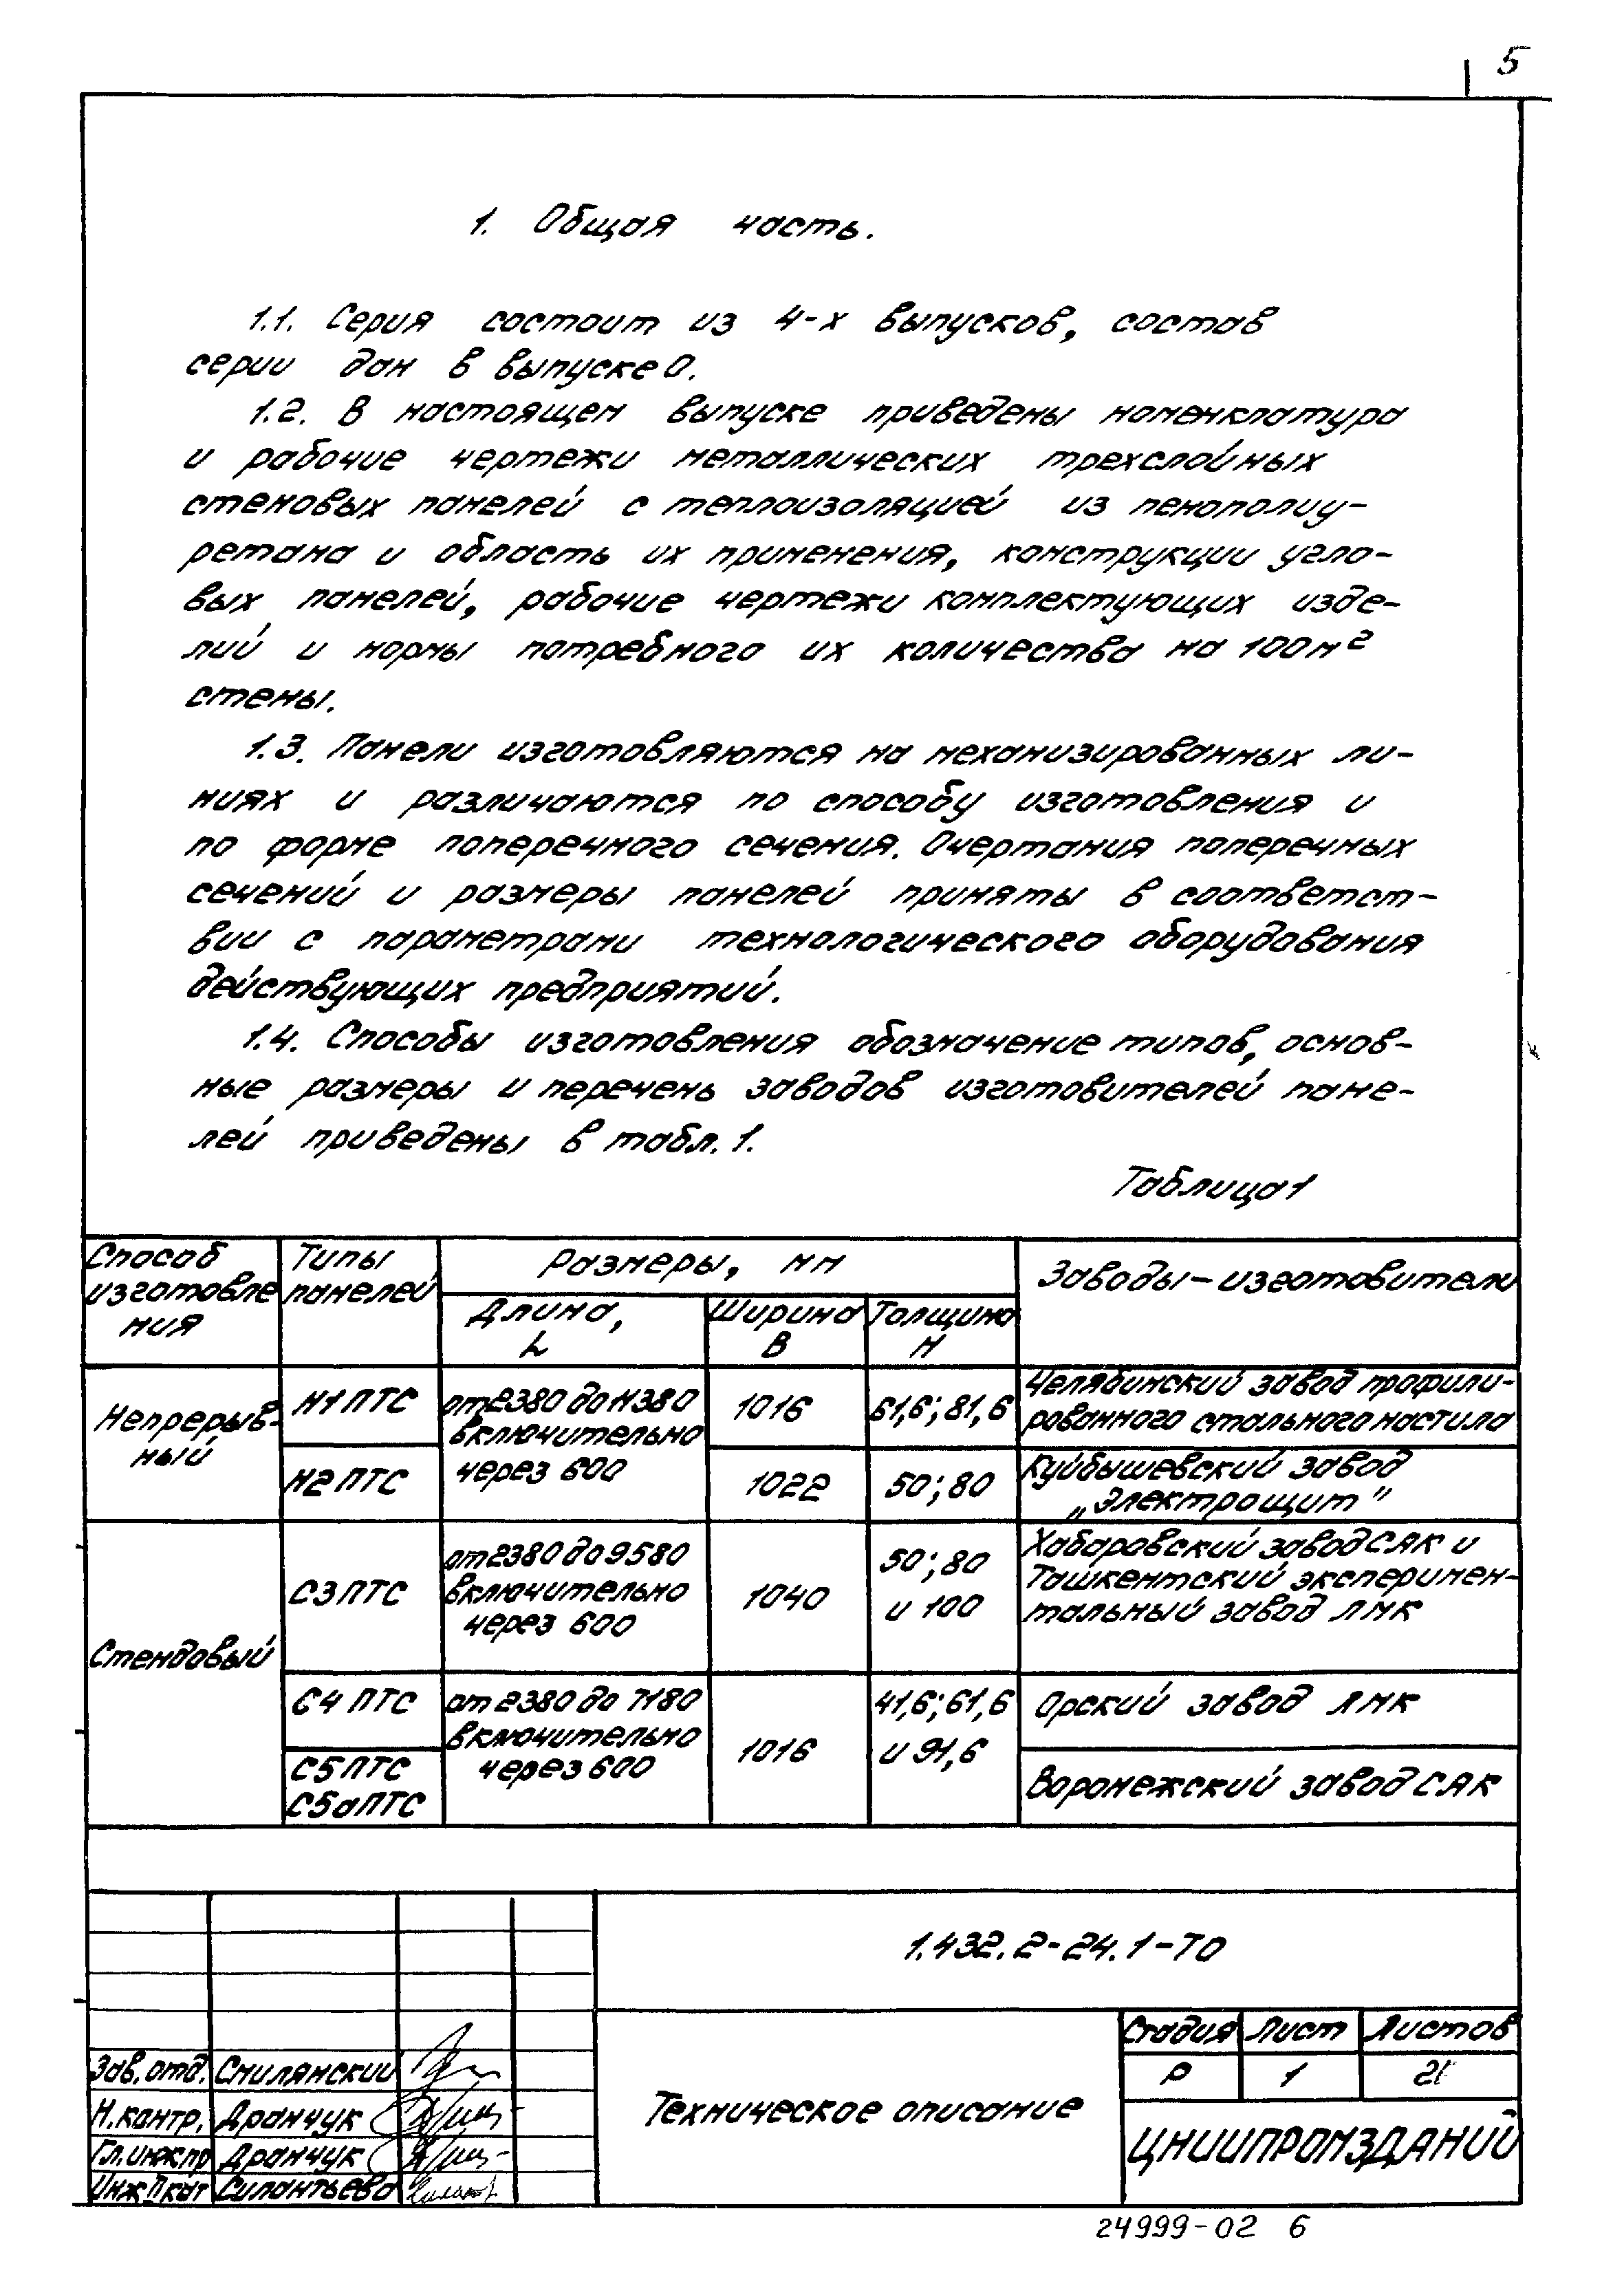 5
1. Общая часть.
1.1. Серия состоит из 4-х выпусков, состав
серии дан в выпуске 0.
1.2. В настоящем выпуске приведены номенклатура
и рабочие чертежи металлических трехслойных
стеновых панелей с теплоизоляцией из пенополиу-
ретана и область их применения, конструкции угло-
вых панелей, рабочие чертежи комплектующих изде-
лий и нормы потребного их количества на 100м²
стены.
1.3. Панели изготовляются на механизированных ли-
ниях и различаются по способу изготовления и
по форме поперечного сечения. Очертания поперечных
сечений и размеры панелей приняты в соответст-
вии с параметрами технологического оборудования
действующих предприятий.
1.4. Способы изготовления обозначение типов, основ-
ные размеры и перечень заводов изготовителей пане-
лей приведены в табл. 1.
Таблица 1
Способ
изготовле
ния
Типы
панелей
Размеры, мм
Длина,
L
Ширина
В
Толщина
Н
Заводы-изготовители
Непрерыв-
ный
Н1 ПТС
от 2380 до 11380
включительно
через 600
1016
61,6; 81,6
Челябинский завод профили-
рованного стального настила
Н2 ПТС
1022
50; 80
Куйбышевский завод
„Электрощит"
Стендовый
С3 ПТС
от 2380 до 9580
включительно
через 600
1040
50; 80
и 100
Хабаровский завод САК и
Ташкентский эксперимен-
тальный завод ЛМК
С4 ПТС
от 2380 до 7180
включительно
через 600
1016
41,6; 61,6
и 91,6
Орский завод ЛМК
С5 ПТС
С5а ПТС
Воронежский завод САК
1.432.2-24.1-ТО
Зав. отд. Смилянский
Н. контр. Дранчук
Гл. инж пр Дранчук
Инж II кат Силантьева
Техническое описание
Стадия Лист Листов
Р 1
ЦНИИПРОМЗДАНИЙ
24999-02 6